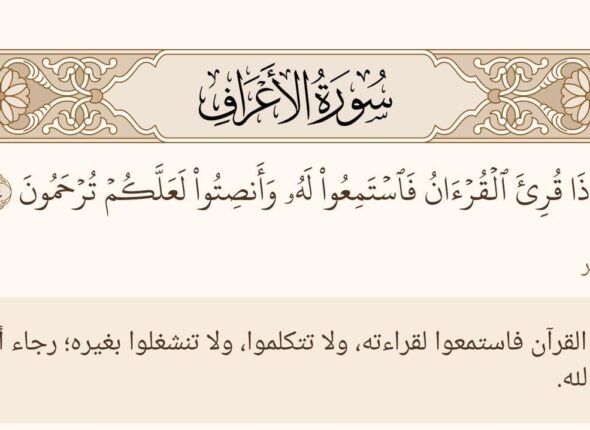 سُورَةُ الأَعْرَافِ
ذَا قُرِئَ ٱلْقُرْءَانُ فَٱسْتَمِعُوا۟ لَهُۥ وَأَنصِتُوا۟ لَعَلَّكُمْ تُرْحَمُونَ
ر
القرآن فاستمعوا لقراءته، ولا تتكلموا، ولا تنشغلوا بغيره؛ رجاء أ
لله.